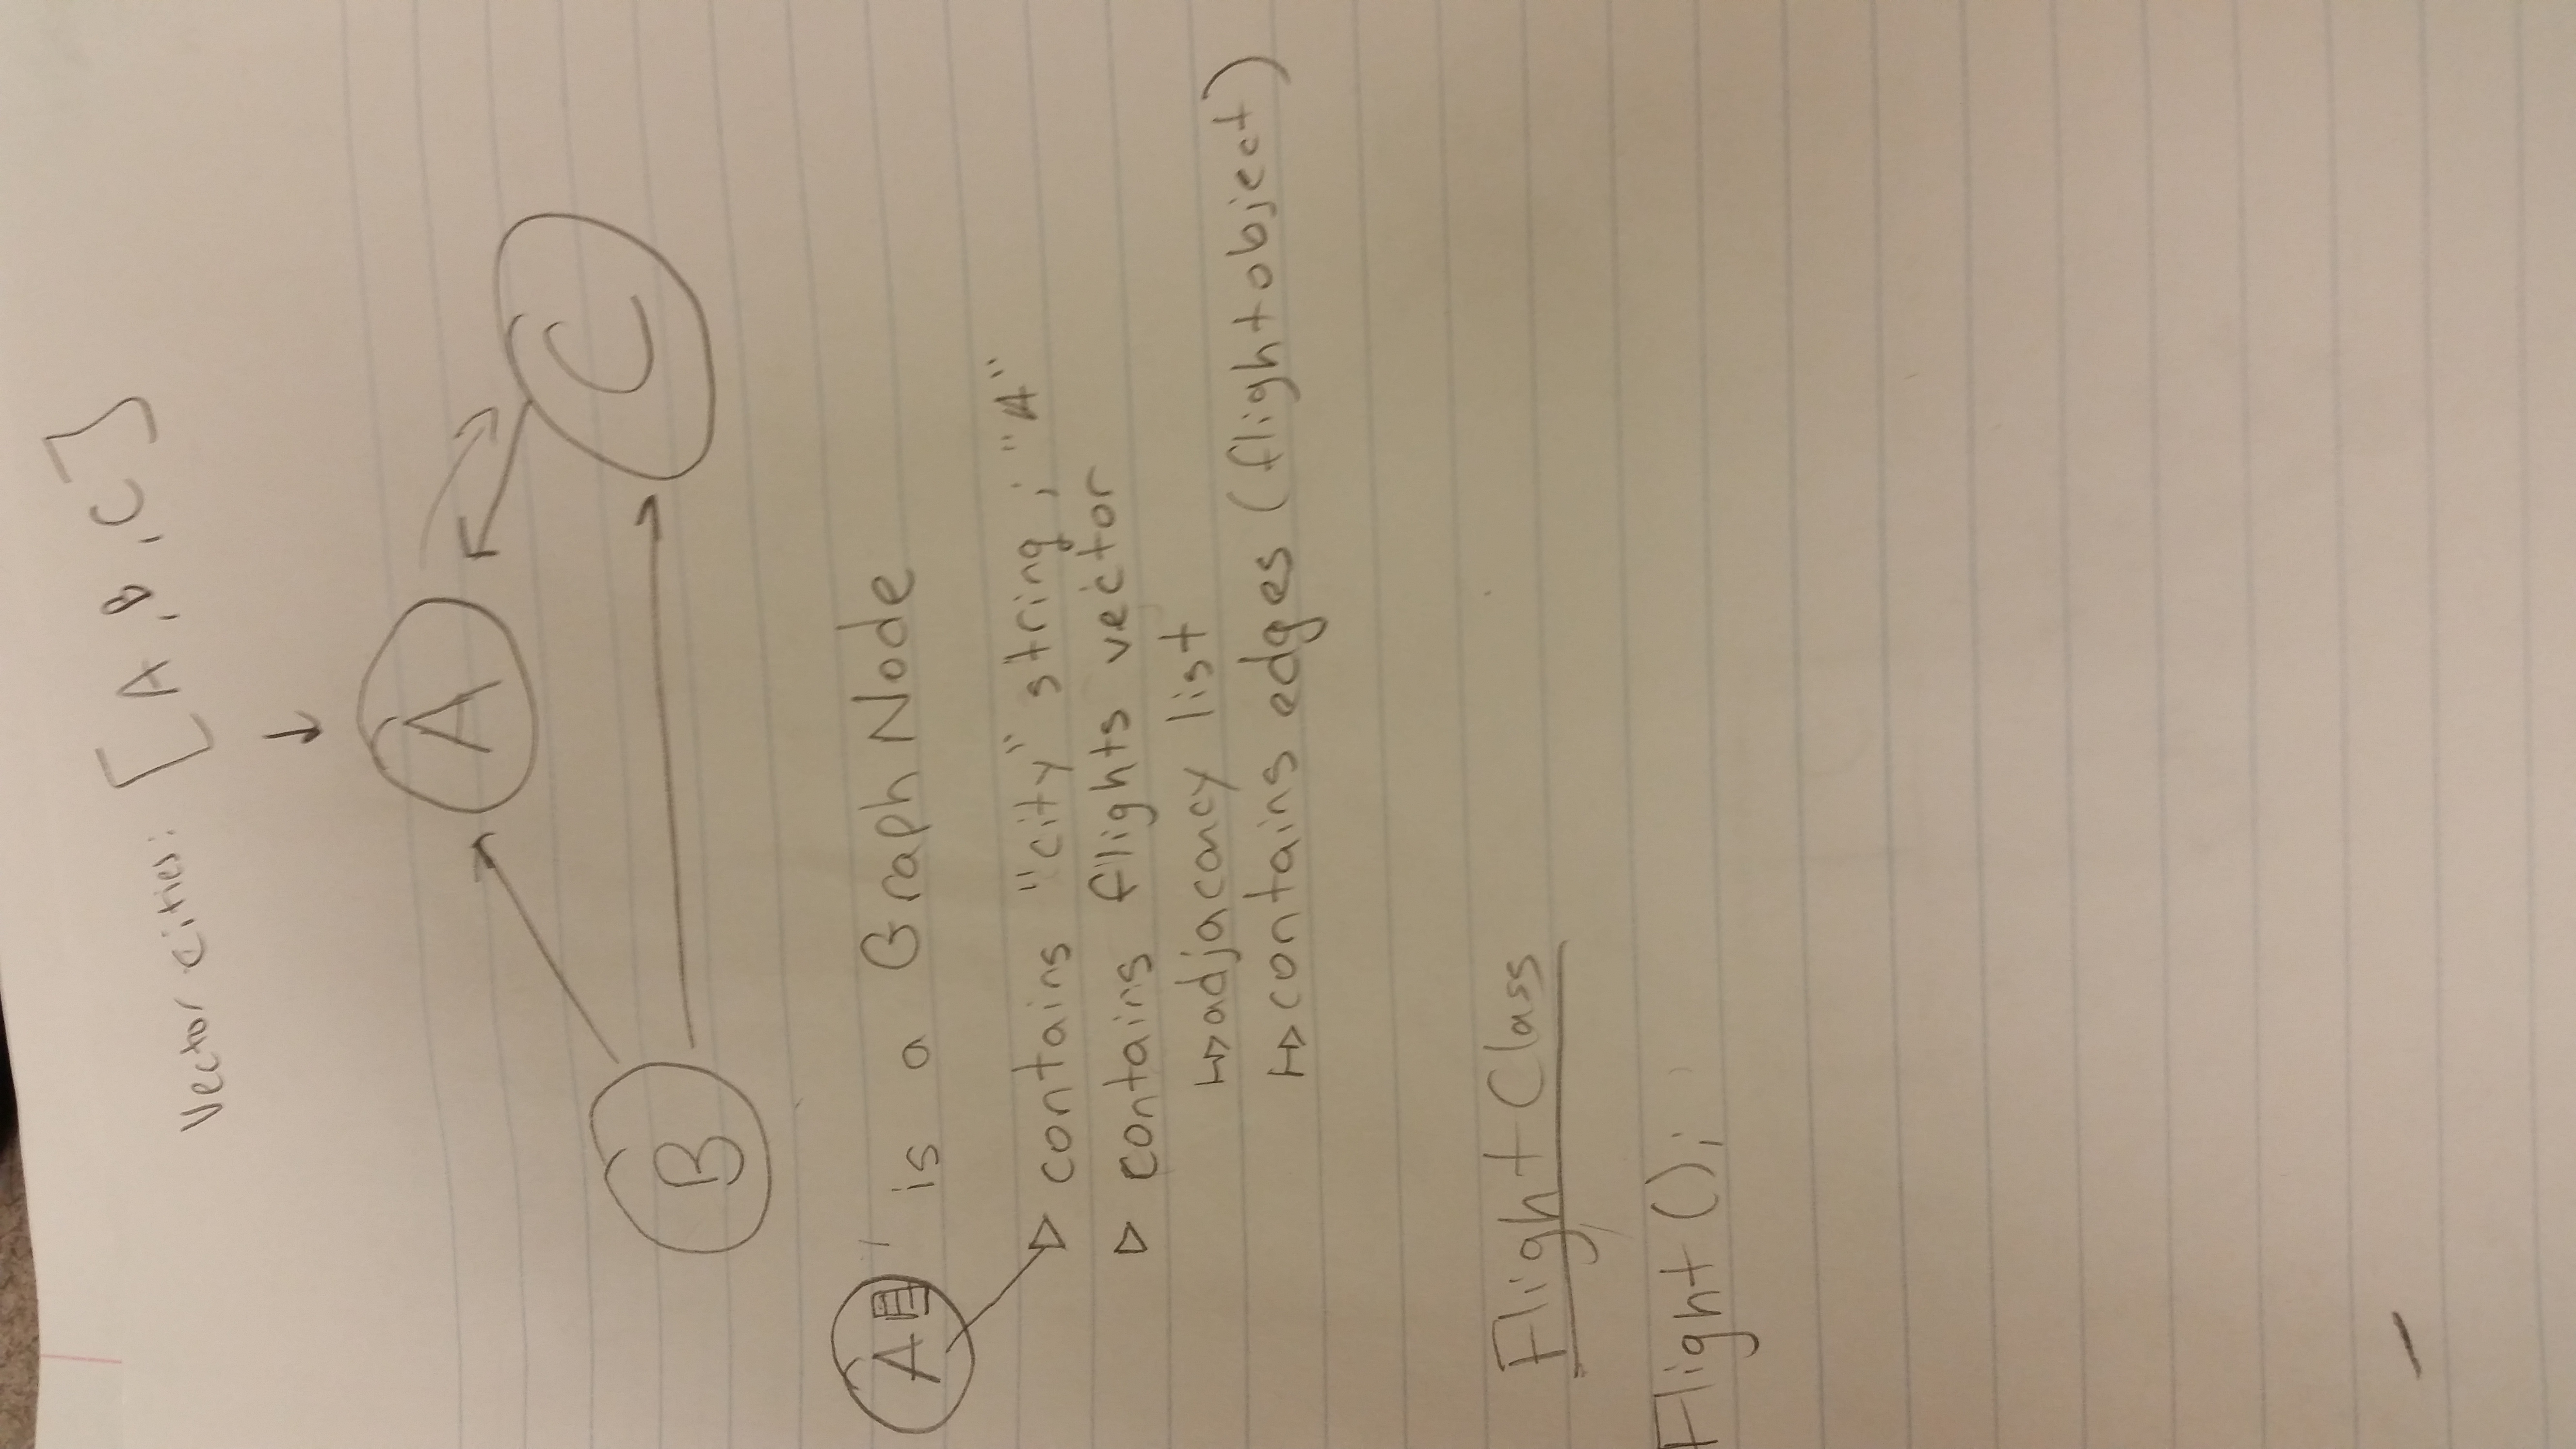 Vector cities: [A, B, C]
A
B
C
A is a Graph Node
contains "city" string; "A"
contains flights vector
adjacancy list
contains edges (flight object)
Flight Class
Flight();